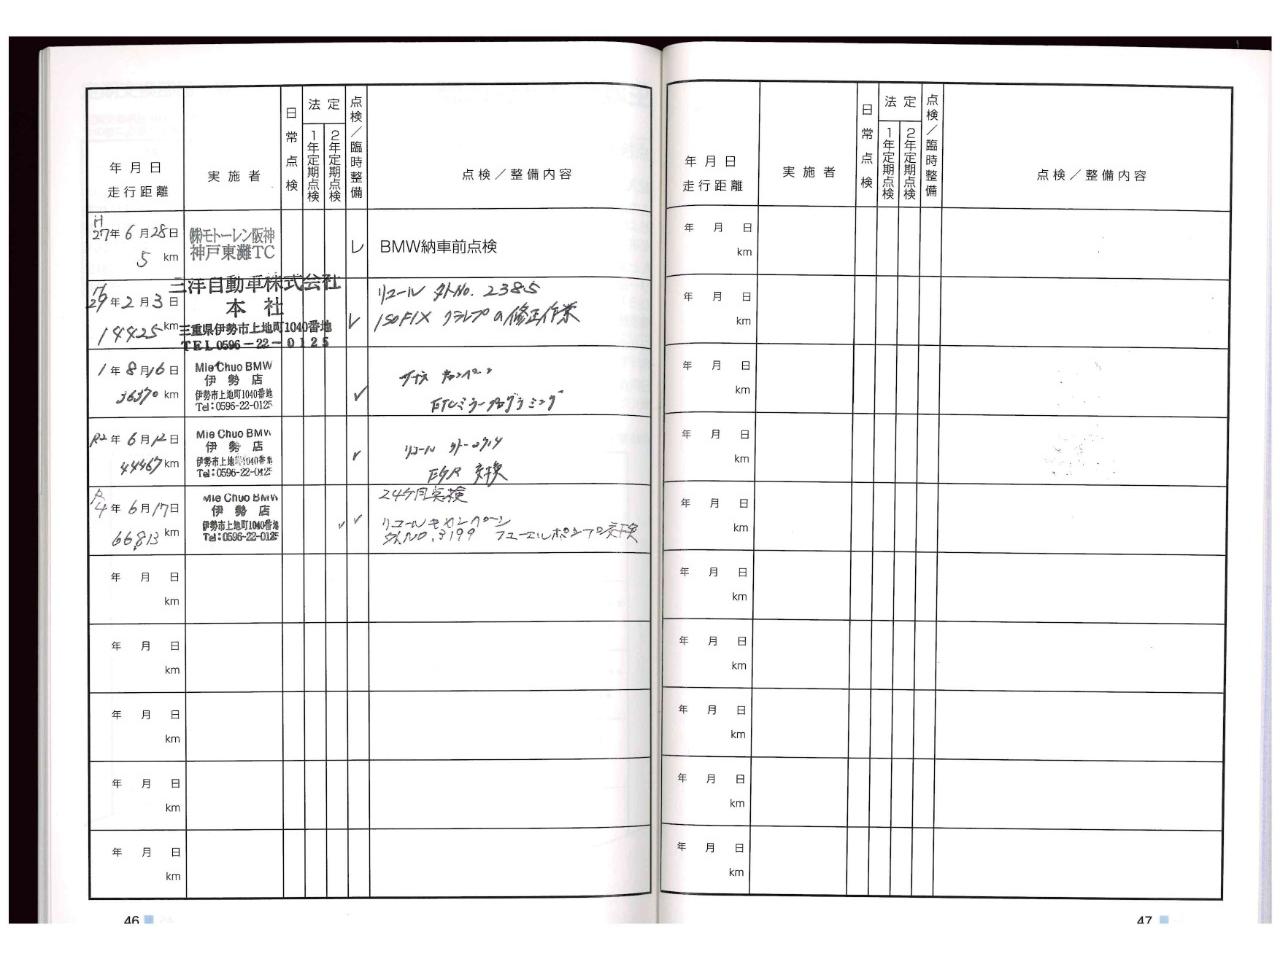 年月日
走行距離
実施者
日常点検
法定
1年定期点検
2年定期点検
点検／臨時整備
点検／整備内容
H
27年 6月 28日
5 km
㈱モトーレン阪神
神戸東灘TC
レ
BMW納車前点検
29年 2月 3日
14425 km
三洋自動車株式会社
本社
三重県伊勢市上地町1040番地
TEL 0596-22-0125
レ
リコール 外No. 2385
ISOFIX クランプの修正作業
1年 8月 16日
36370 km
Mie Chuo BMW
伊勢店
伊勢市上地町1040番地
Tel:0596-22-0125
✓
キャンペーン
ETCミラープログラミング
R2年 6月 12日
44467 km
Mie Chuo BMW
伊勢店
伊勢市上地町1040番地
Tel:0596-22-0125
✓
リコール
EGR 交換
R
4年 6月 17日
66813 km
Mie Chuo BMW
伊勢店
伊勢市上地町1040番地
Tel:0596-22-0125
✓ ✓
24ケ月点検
リコールキャンペーン
外.NO.3199 フューエルポンプ交換
年 月 日
km
年 月 日
km
年 月 日
km
年 月 日
km
年 月 日
km
46
年月日
走行距離
実施者
日常点検
法定
1年定期点検
2年定期点検
点検／臨時整備
点検／整備内容
年 月 日
km
年 月 日
km
年 月 日
km
年 月 日
km
年 月 日
km
年 月 日
km
年 月 日
km
年 月 日
km
年 月 日
km
年 月 日
km
47